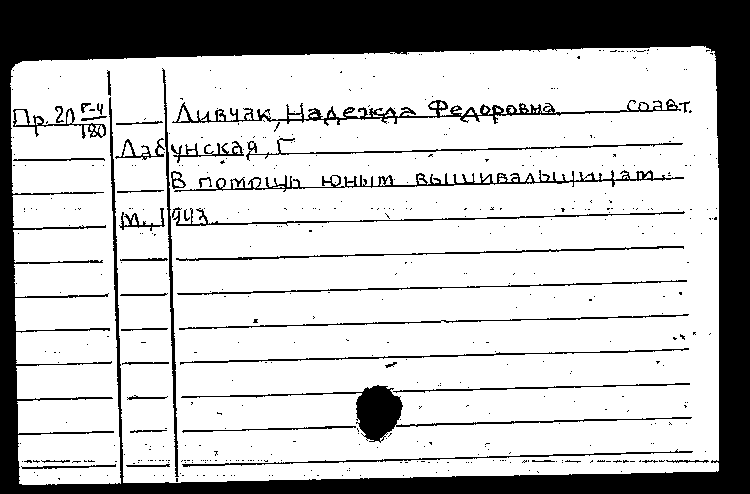 Пр. 20 Г-4/180 Ливчак, Надежда Федоровна соавт.
Лабунская, Г
В помощь юным вышивальщицам..
М., 1943.